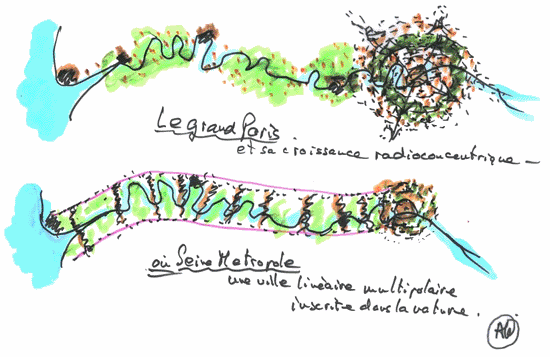 Le grand Paris.
et sa croissance radioconcentrique -
où Seine Metropole
une ville linéaire multipolaire
inscrite dans la nature.